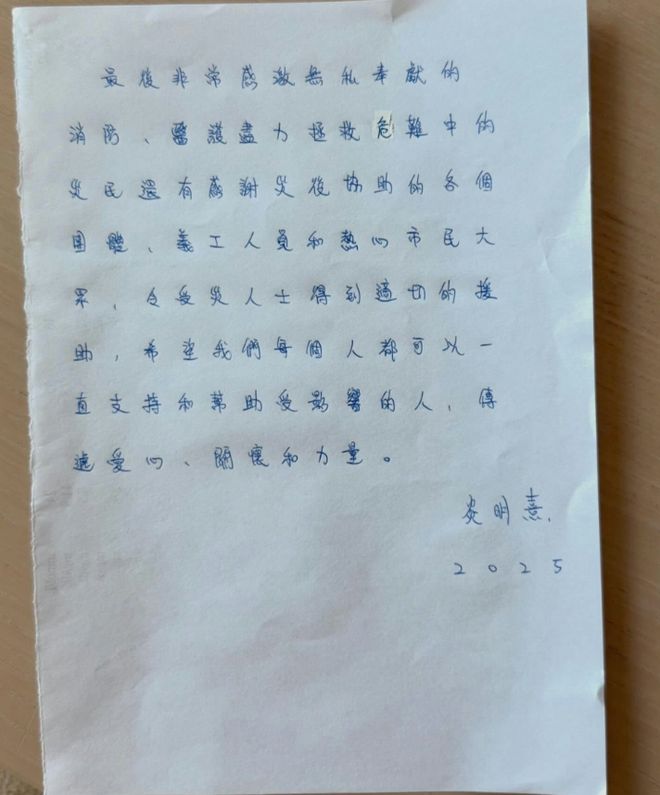 最後非常感激無私奉獻的
消防、醫護盡力拯救危難中的
災民還有感謝災後協助的各個
團體、義工人員和熱心市民大
眾，令受災人士得到適切的援
助，希望我們每個人都可以一
直支持和幫助受影響的人，傳
遞愛心、關懷和力量。
炎明熹
2025